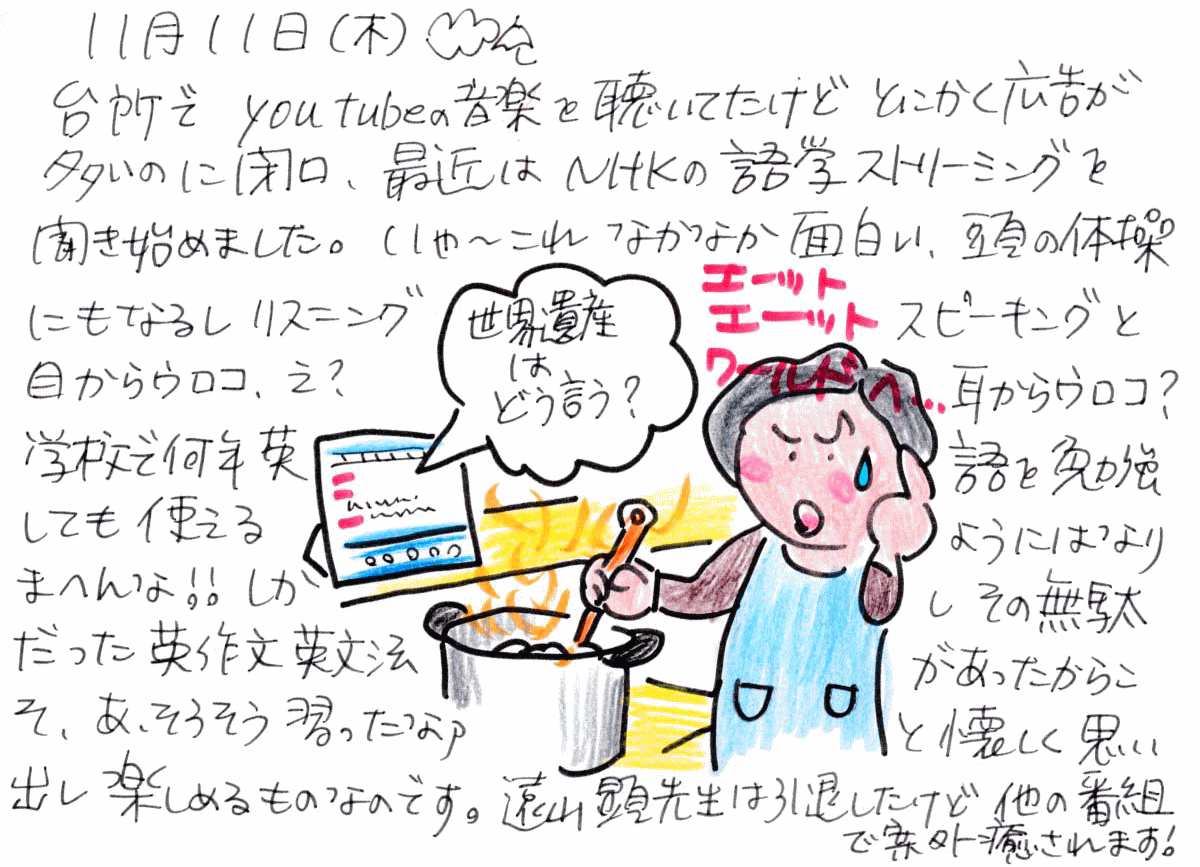 11月11日(木)
台所で youtubeの音楽を聴いてたけど とにかく広告が
多いのに閉口、最近は NHKの語学ストリーミングを
聞き始めました。いや〜これ なかなか面白い、頭の体操
にもなるし リスニング スピーキングと
目からウロコ、え? 耳からウロコ?
学校で何年英語を勉強
しても使えるようにはなり
まへんな!! しかし その無駄
だった英作文英文法があったからこ
そ、あ、そうそう習ったなアと懐しく思い
出し楽しめるものなのです。遠山顕先生は引退したけど 他の番組
で案外癒されます!
世界遺産
は
どう言う?
エーット
エーット
ワールド へ…